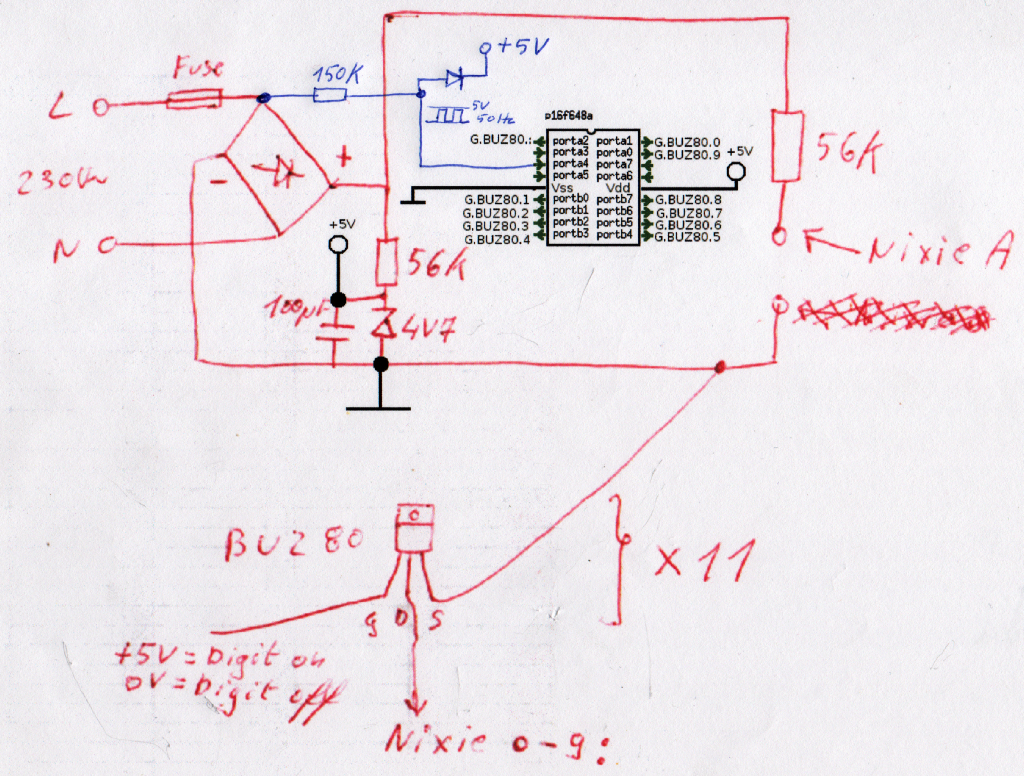 Fuse
L
230V~
N
150K
+5V
5V
50Hz
p16f648a
G.BUZ80.: porta2 porta1 G.BUZ80.0
porta3 porta0 G.BUZ80.9
porta4 porta7
porta5 porta6
Vss Vdd
+5V
G.BUZ80.1 portb0 portb7 G.BUZ80.8
G.BUZ80.2 portb1 portb6 G.BUZ80.7
G.BUZ80.3 portb2 portb5 G.BUZ80.6
G.BUZ80.4 portb3 portb4 G.BUZ80.5
56K
Nixie A
+
-
+5V
56K
100µF
4V7
BUZ80
x11
g D S
+5V = Digit on
0V = Digit off
Nixie 0-9: